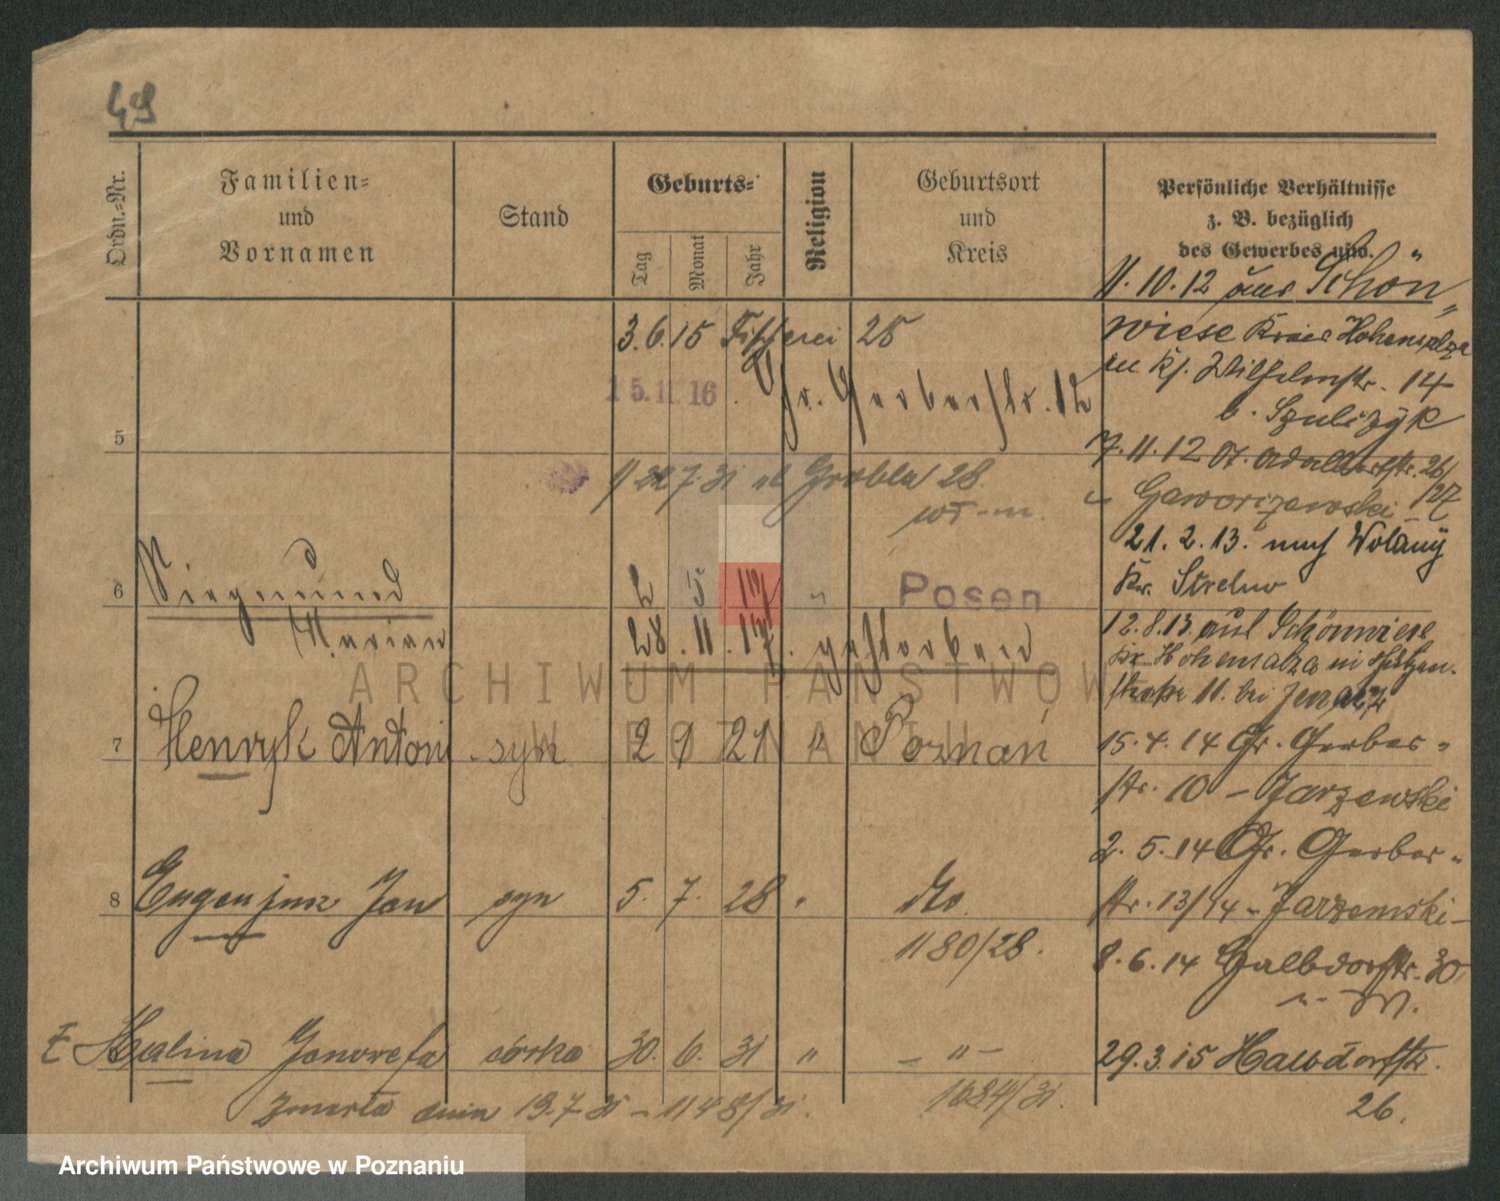 49
Ordn.-Nr.
Familien-
und
Vornamen
Stand
Geburts-
Tag
Monat
Jahr
Religion
Geburtsort
und
Kreis
Persönliche Verhältnisse
z. B. bezüglich
des Gewerbes usw.
11.10.12 aus Schön-
wiese Kreis Hohensalza
in Wilhelmstr. 14
b. Szulczyk
7.11.12 St. Adalbertstr. 26/27
Gaworzewski
21.2.13. nach Wolany
Kr. Strelno
12.8.13. aus Schönwiese
Kr. Hohensalza in Schützen-
straße 11. bei
15.4.14 Gr. Gerber-
str. 10 – Jarzewski
2.5.14 Gr. Gerber-
str. 13/14 - Jarzemski -
8.6.14 Halbdorfstr. 30
29.3.15 Halbdorfstr.
26.
3.6.15 Fischerei 25
15.11.16. Gr. Gerberstr. 12
5
22 7 31 ul Grobla 28.
wł-m.
6 Siegmund 2 5 17 " Posen
Marian 28.11.17. gestorben
7 Henryk Antoni - syn 2 9 21 " Poznań
8 Eugenjusz Jan syn 5. 7. 28 " dto
1180/28.
Halina Janorefa córka 30. 6. 31 " - " -
zmarła dnia 19.7 31 - 1148/31. 1684/31.
ARCHIWUM PAŃSTWOW
W POZNANIU
Archiwum Państwowe w Poznaniu